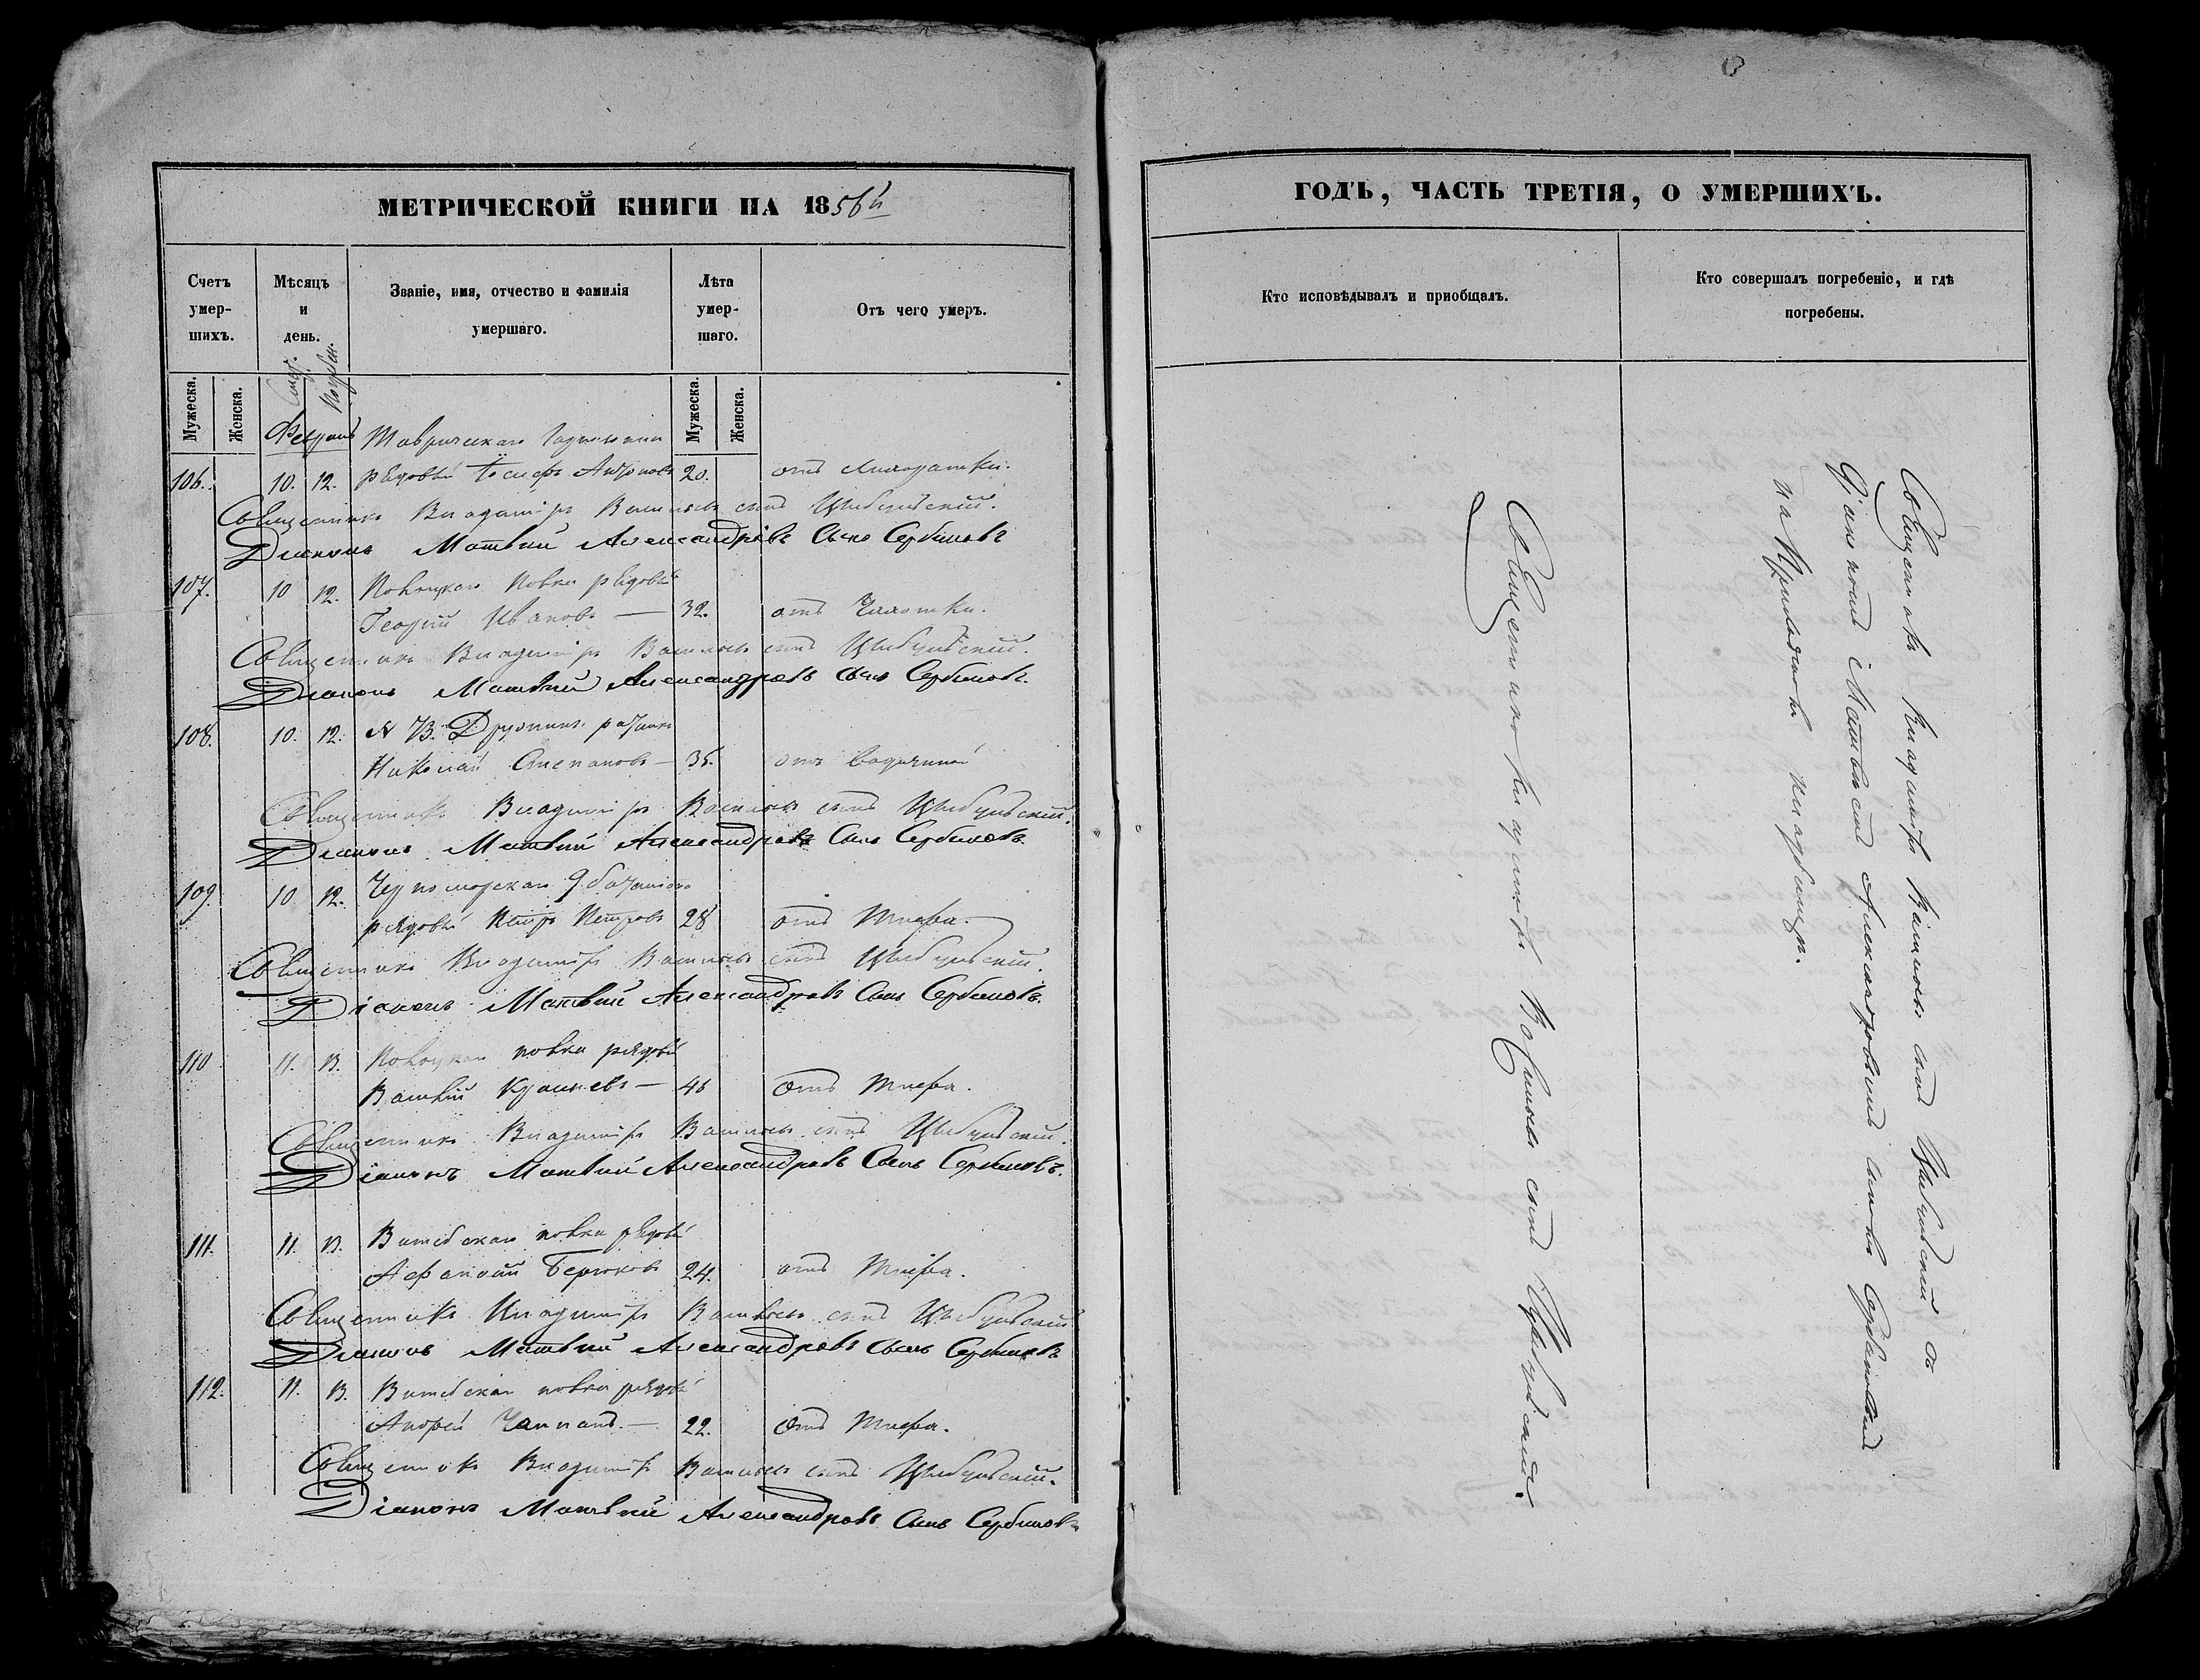 МЕТРИЧЕСКОЙ КНИГИ НА 1856й
Счетъ умер-шихъ.
Мѣсяцъ и день.
Званіе, имя, отчество и фамилія умершаго.
Лѣта умер-шаго.
Отъ чего умеръ.
Мужеска.
Женска.
Смерт.
Погребен.
Мужеска.
Женска.
Февраль Таврическаго
106. 10. 12. рядовый Іосифъ 20. отъ лихорадки.
Священникъ Владиміръ Васильевъ сынъ Цыбулевскій.
Діаконъ Матвей Александровъ Сынъ Сербиновъ
107. 10 12. полка рядовый
Георгій Ивановъ — 32. отъ Чахотки.
Священникъ Владиміръ Васильевъ сынъ Цыбулевскій.
Діаконъ Матвей Александровъ Сынъ Сербиновъ.
108. 10. 12. Дружины ратникъ
Николай Степановъ — 35. отъ водяной
Священникъ Владиміръ Васильевъ сынъ Цыбулевскій.
Діаконъ Матвей Александровъ Сынъ Сербиновъ.
109. 10. 12. Черноморскаго 9 баталіона
рядовый Петръ Петровъ 28 отъ тифа.
Священникъ Владиміръ Васильевъ сынъ Цыбулевскій.
Діаконъ Матвей Александровъ Сынъ Сербиновъ.
110 11. 13. полка рядовый
Василій — 46 Отъ тифа.
Священникъ Владиміръ Васильевъ сынъ Цыбулевскій.
Діаконъ Матвей Александровъ Сынъ Сербиновъ.
111. 11. 13. Витебскаго полка рядовый
Афанасій Бирюковъ 24. отъ тифа.
Священникъ Владиміръ Васильевъ сынъ Цыбулевскій
Діаконъ Матвей Александровъ Сынъ Сербиновъ
112. 11. 13. Витебскаго полка рядовый
Андрей — 22. Отъ тифа.
Священникъ Владиміръ Васильевъ сынъ Цыбулевскій.
Діаконъ Матвей Александровъ Сынъ Сербиновъ
ГОДЪ, ЧАСТЬ ТРЕТІЯ, О УМЕРШИХЪ.
Кто исповѣдывалъ и пріобщалъ.
Кто совершалъ погребеніе, и гдѣ погребены.
Священникъ Владиміръ Васильевъ сынъ Цыбулевскій.
Священникъ Владиміръ Васильевъ сынъ Цыбулевскій съ
Діакономъ Матвеемъ Александровымъ сыномъ Сербиновымъ
на Приходскомъ кладбищѣ.